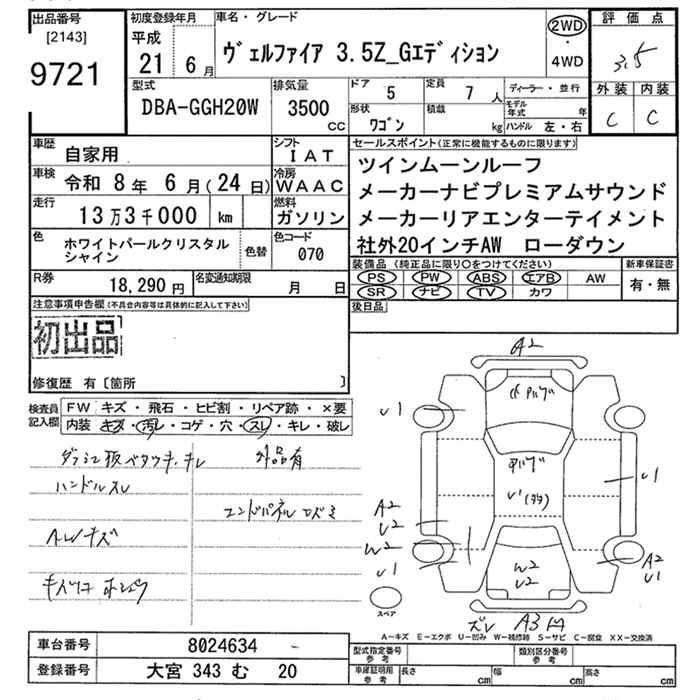 出品番号
[2143]
9721
初度登録年月
平成
21 6月
車名・グレード
ヴェルファイア 3.5Z_Gエディション
2WD
・
4WD
評価点
3.5
外装 内装
C C
型式
DBA-GGH20W
排気量
3500
CC
ドア
5
定員
7人
形状
ワゴン
積載
kg
ディーラー・並行
モデル年式 年
ハンドル 左・右
車歴
自家用
シフト
IAT
車検
令和 8年 6月(24日)
冷房
WAAC
走行
13万3千000 km
燃料
ガソリン
色
ホワイトパールクリスタル
シャイン
色替
色コード
070
R券
18,290円
名変通知期限
月 日
セールスポイント(正常に機能するものに限ります)
ツインムーンルーフ
メーカーナビプレミアムサウンド
メーカーリアエンターテイメント
社外20インチAW ローダウン
装備品(純正品に限り○をつけてください)
新車保証書
PS PW ABS エアB AW
SR ナビ TV カワ
有・無
後日品
注意事項申告欄(不具合内容等は具体的に記入して下さい)
初出品
修復歴 有〔箇所 〕
検査員
記入欄
FW キズ・飛石・ヒビ割・リペア跡・×要
内装 キズ・汚レ・コゲ・穴・スレ・キレ・破レ
外品有
ハンドルスレ
エンドパネル
A2
U1
U1
A2
U2
W2
U1
W2
U2
A2
U1
ズレ A3
スペア
A-キズ E-エクボ U-凹み W-補修跡 S-サビ C-腐食 XX-交換済
車台番号
8024634
登録番号
大宮 343 む 20
型式指定番号
参考
類別区分番号
参考
車庫証明用
参考
長さ cm 幅 cm 高さ cm